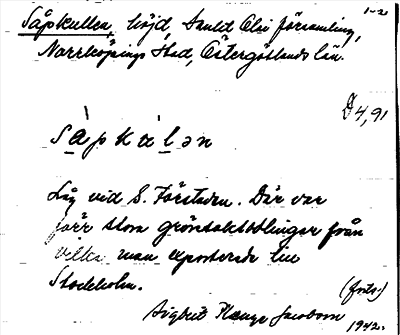 1-2
Såpkullen, höjd, Sankt Olai församling,
Norrköpings stad, Östergötlands län.
D 4,91
såpkulən
Låg vid S. Förstaden. Där var
förr stora grönsaksodlingar från
vilka man exporterade till
Stockholm.
(forts.)
Sigbrit Plænge Jacobson
1942.